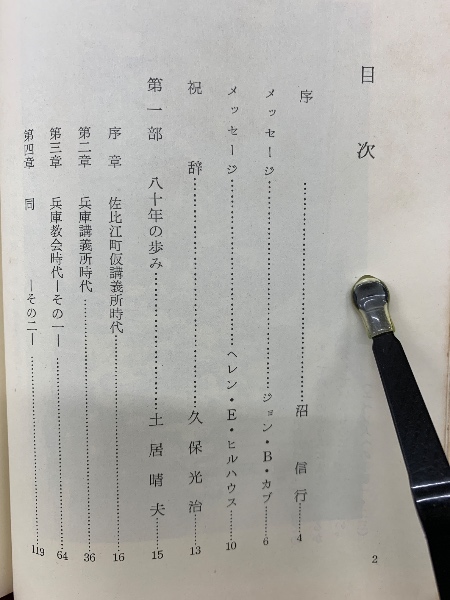 目次
序……沼信行 4
メッセージ……ジョン・B・カブ 6
メッセージ……ヘレン・E・ヒルハウス 10
祝辞……久保光治 13
第一部 八十年の歩み……土居晴夫 15
序章 佐比江町仮講義所時代……16
第二章 兵庫講義所時代……36
第三章 兵庫教会時代―その一―……64
第四章 同 ―その二―……119
2